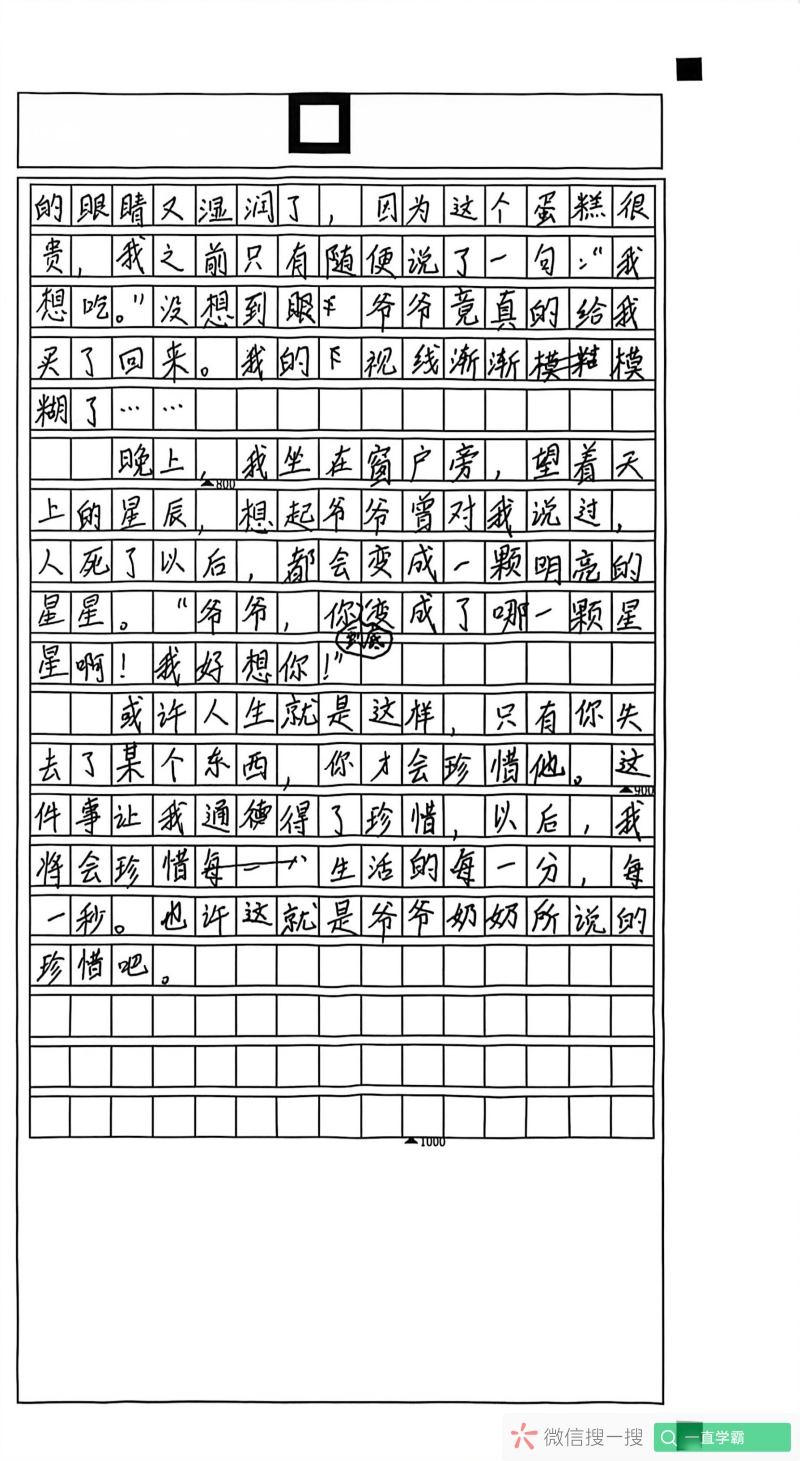 的眼睛又湿润了，因为这个蛋糕很
贵，我之前只有随便说了一句：“我
想吃。”没想到眼下爷爷竟真的给我
买了回来。我的下视线渐渐模模
糊了……
晚上，我坐在窗户旁，望着天
800
上的星辰，想起爷爷曾对我说过，
人死了以后，都会变成一颗明亮的
星星。“爷爷，你到底变成了哪一颗星
星啊！我好想你！”
或许人生就是这样，只有你失
去了某个东西，你才会珍惜他。这
900
件事让我通德得了珍惜，以后，我
将会珍惜每一生活的每一分，每
一秒。也许这就是爷爷奶奶所说的
珍惜吧。
1000
微信搜一搜 一直学霸